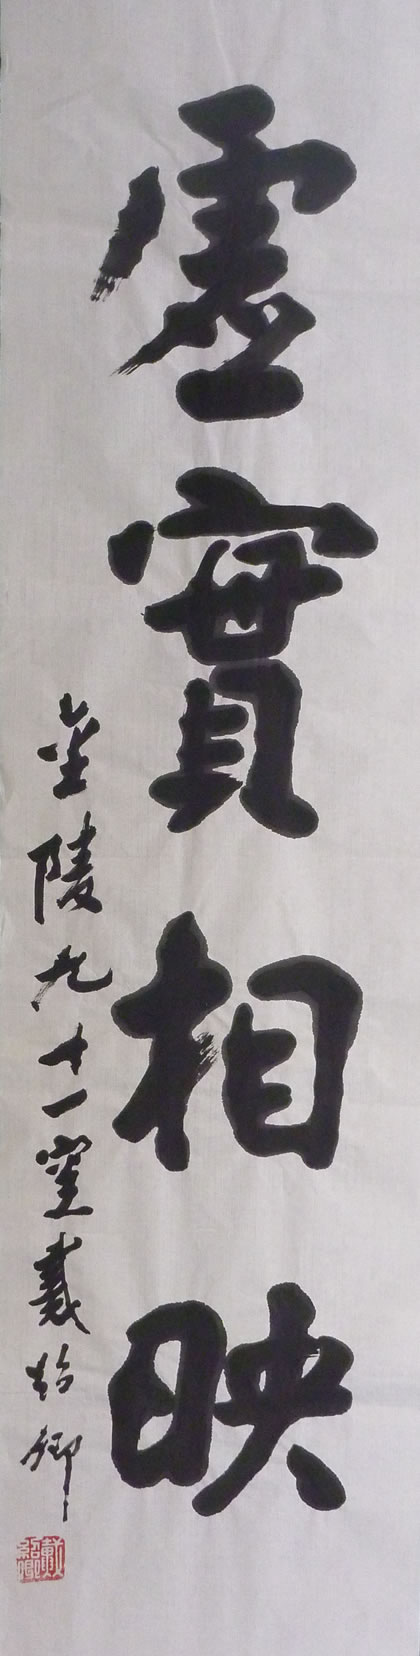 虛實相映
金陵九十一叟戴紹卿